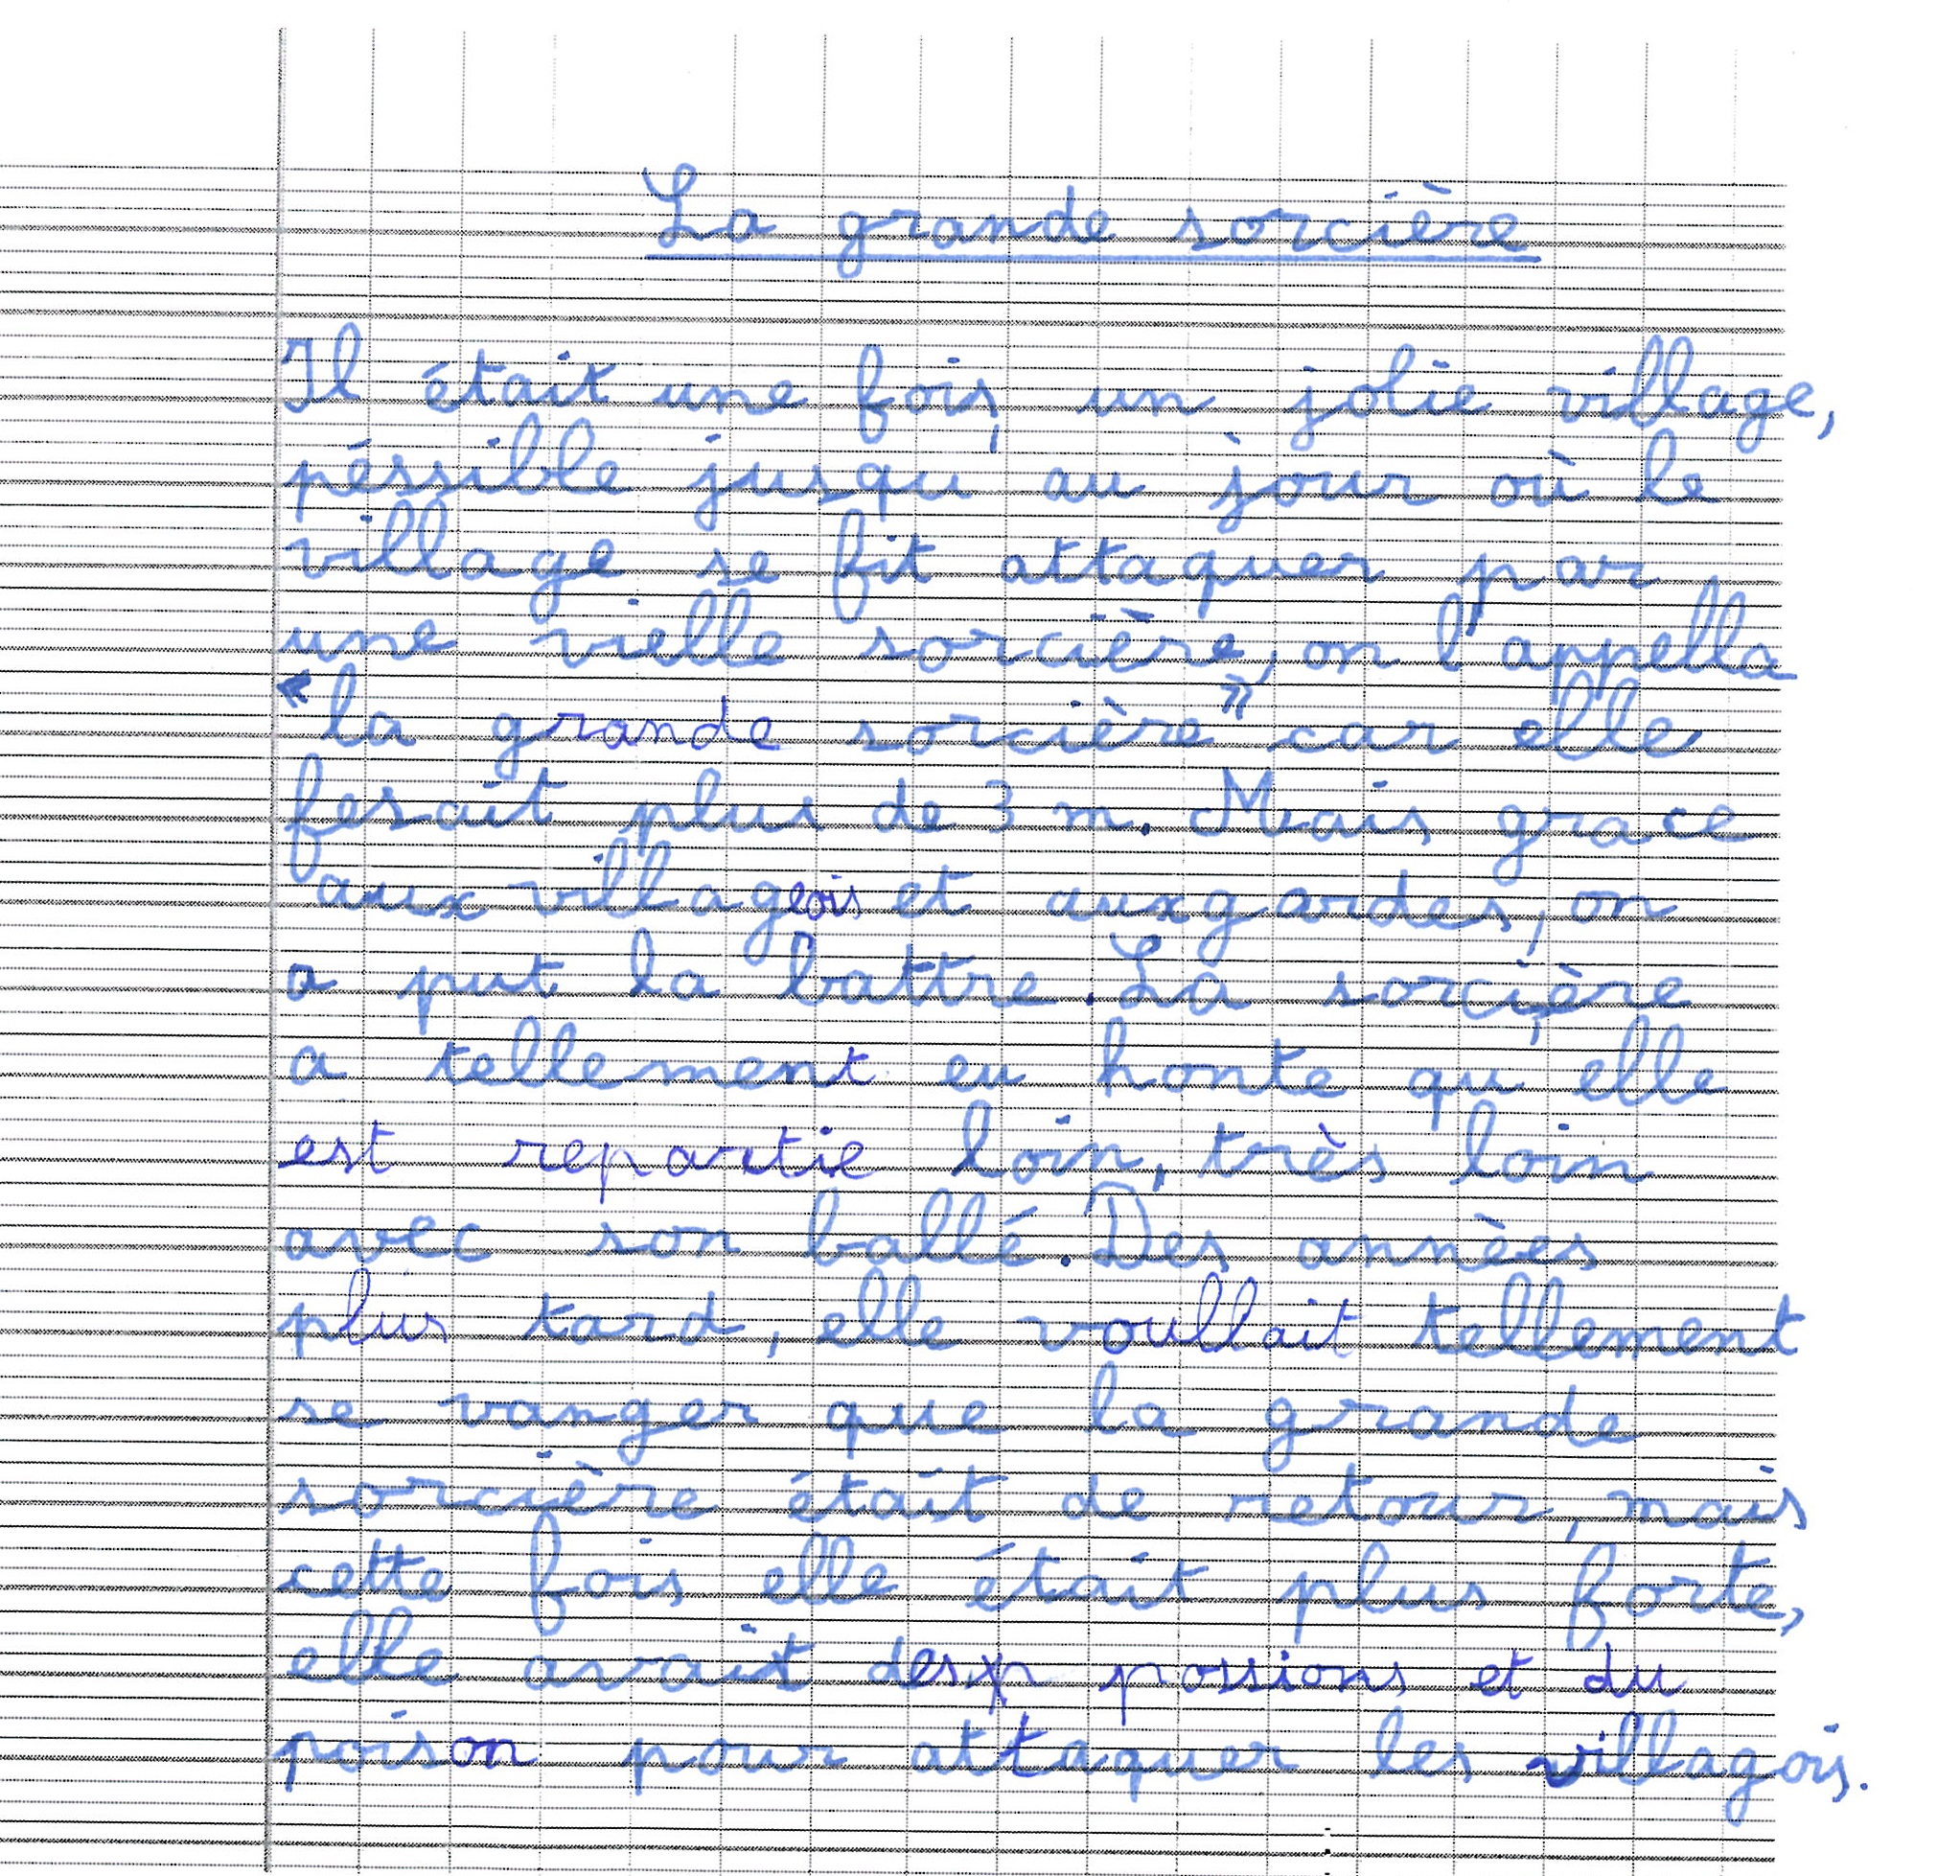 La grande sorcière
Il était une fois, un jolie village,
péssible jusqu au jour où le
village se fit attaquer par
une vielle sorcière, on l'appella
"la grande sorcière" car elle
fesait plus de 3 m. Mais grace
aux villageois et aux gardes, on
a put la battre. La sorcière
a tellement eu honte qu elle
est repartie loin, très loin
avec son ballé. Des annèes
plus tard, elle voullait tellement
se vanger que la grande
sorcière était de retour, mais
cette fois elle était plus forte,
elle avait des possions et du
poison pour attaquer les villagois.